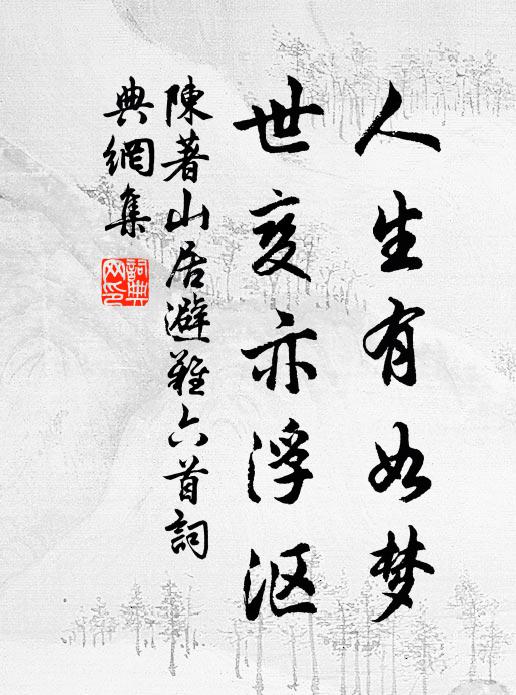 人生有如梦
世变亦浮沤
陳著山居避難六首詞
典網集
詞典网印